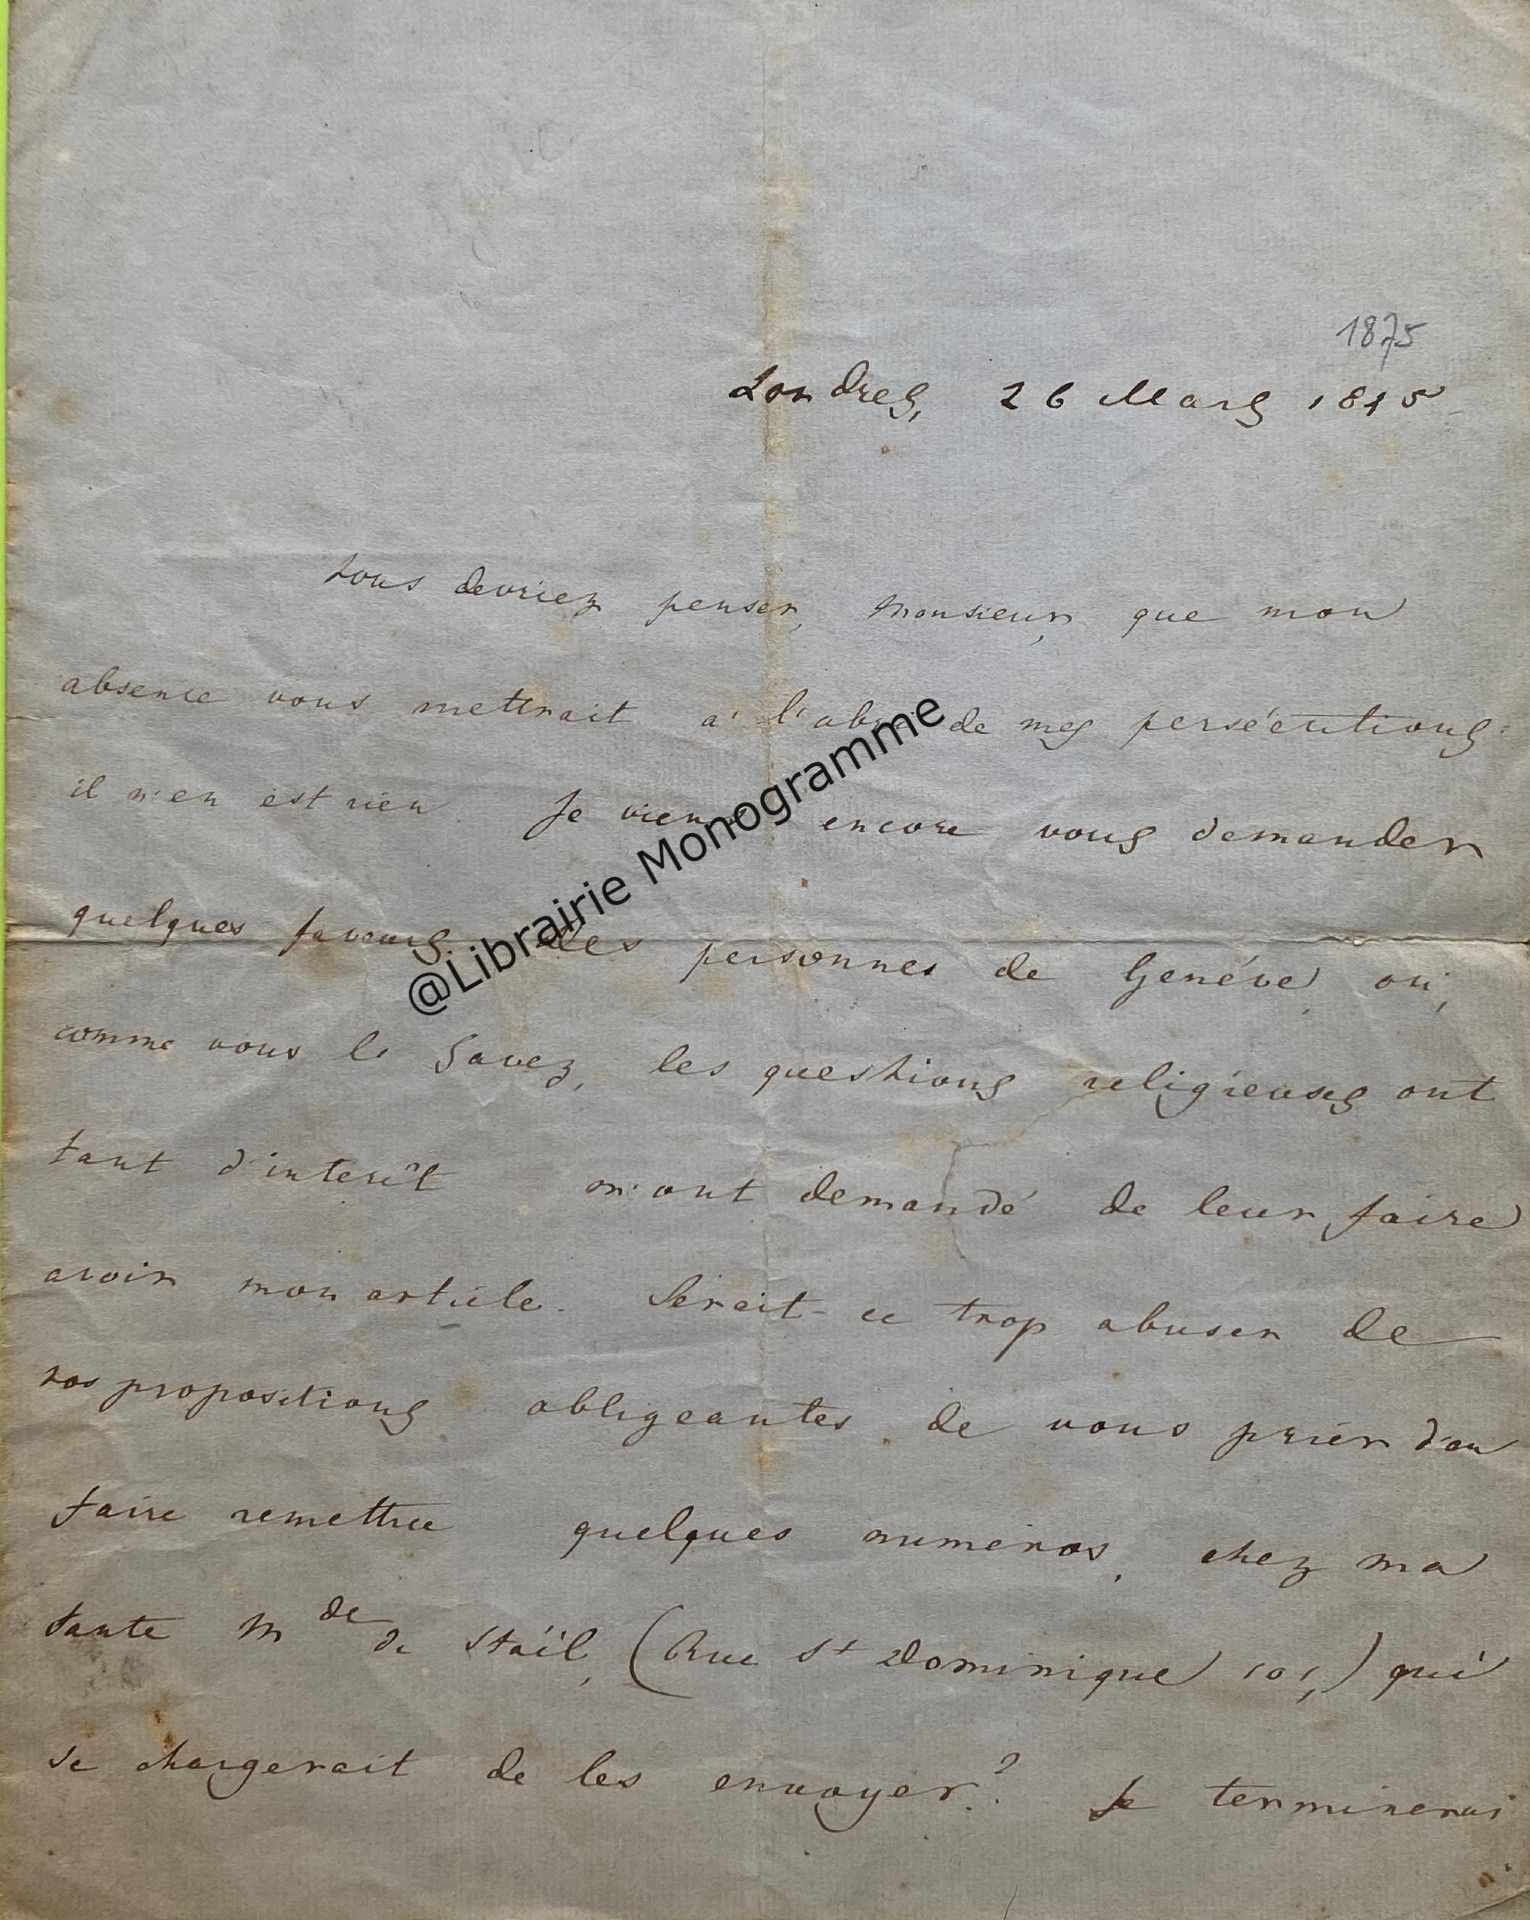 1875
Londres, 26 Mars 1845
Vous devriez penser, Monsieur, que mon
absence vous mettrait à l'abri de mes persécutions:
il n'en est rien. Je viens encore vous demander
quelques faveurs. Des personnes de Genève, où,
comme vous le savez, les questions religieuses ont
tant d'interêt m'ont demandé de leur faire
avoir mon article. Serait-ce trop abuser de
vos propositions obligeantes de vous prier d'en
faire remettre quelques numéros, chez ma
tante Mde de Staël, (Rue St Dominique 101,) qui
se chargerait de les envoyer? Je terminerai
@Librairie Monogramme